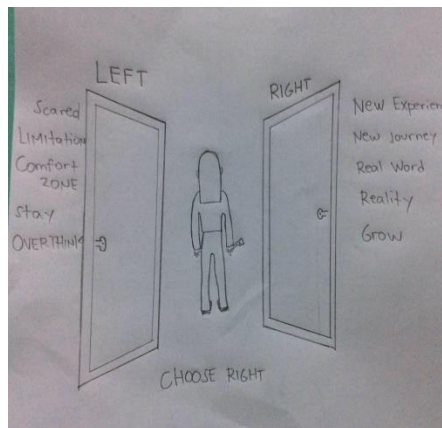 LEFT
Scared
LIMITATION
Comfort
ZONE
Stay
OVERTHINK
RIGHT
New Experien
New Journey
Real Word
Reality
Grow
CHOOSE RIGHT